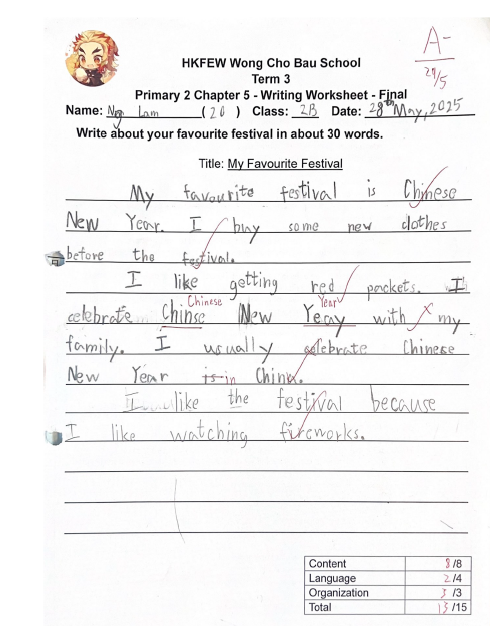 A-
29/5
HKFEW Wong Cho Bau School
Term 3
Primary 2 Chapter 5 - Writing Worksheet - Final
Name: Ng Lam (20) Class: 2B Date: 28th May, 2025
Write about your favourite festival in about 30 words.
Title: My Favourite Festival
My favourite festival is Chinese
New Year. I buy some new clothes
before the festival.
I like getting red packets. I
Chinese Year
celebrate Chinse New Yeay with my
family. I usually celebrate Chinese
New Year is in China.
I like the festival because
I like watching fireworks.
Content 8/8
Language 2/4
Organization 3/3
Total 13/15